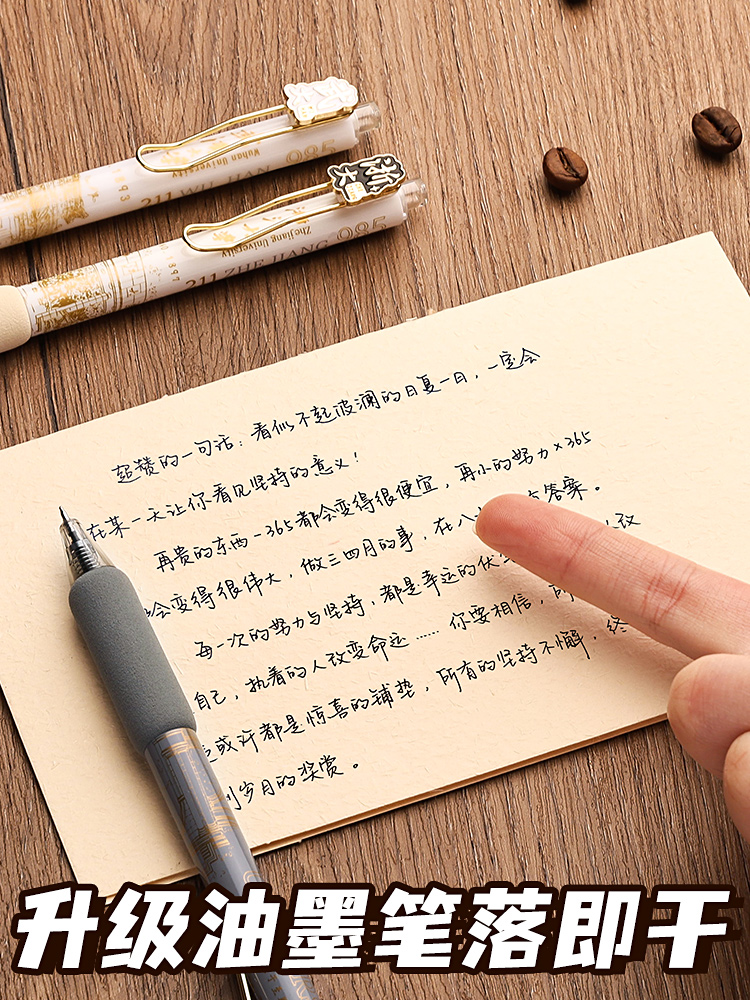 1893
Wuhan University
211 WU HAN 985
浙大
1897
Zhejiang University
211 ZHE JIANG 985
超赞的一句话：看似不起波澜的日复一日，一定会
在某一天让你看见坚持的意义！
再贵的东西÷365都会变得很便宜，再小的努力×365
会变得很伟大，做三四月的事，在八 答案。
每一次的努力与坚持，都是幸运的伏 改
自己，执着的人改变命运……你要相信，所
或许都是惊喜的铺垫，所有的坚持不懈，终
到岁月的奖赏。
升级油墨笔落即干